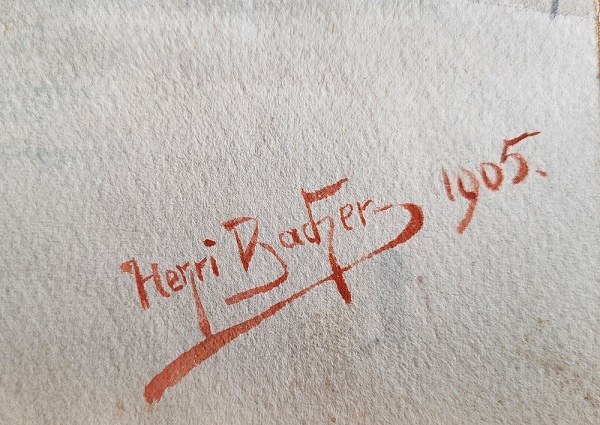 Henri Bacher 1905.